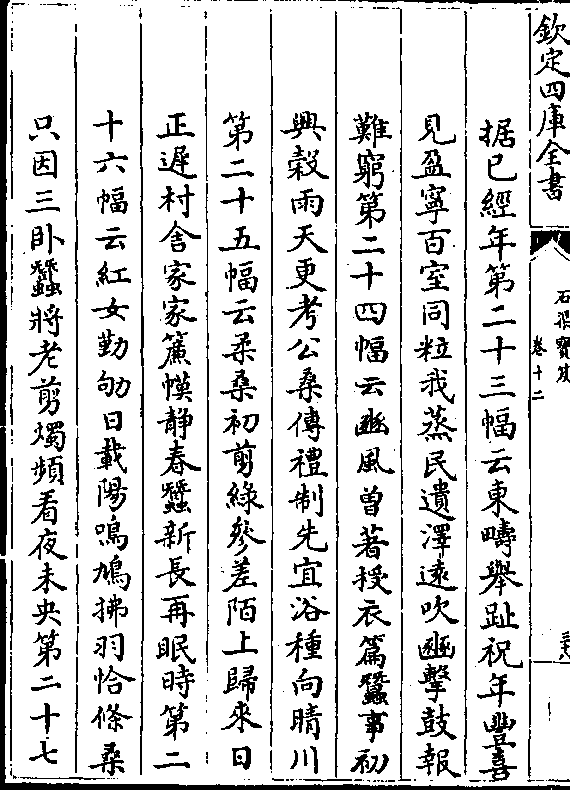 欽定四庫全書
石渠寶笈
卷十二
据已經年第二十三幅云東疇舉趾祝年豐喜
見盈寧百室同粒我蒸民遺澤遠吹豳擊鼓報
難窮第二十四幅云豳風曽著授衣篇蠶事初
興榖雨天更考公桑傳禮制先宜浴種向晴川
第二十五幅云柔桑初剪綠參差陌上歸來日
正遲村舍家家簾幙静春蠶新長再眠時第二
十六幅云紅女勤劬日載陽鳴鳩拂羽恰條桑
只因三卧蠶將老剪燭頻看夜未央第二十七